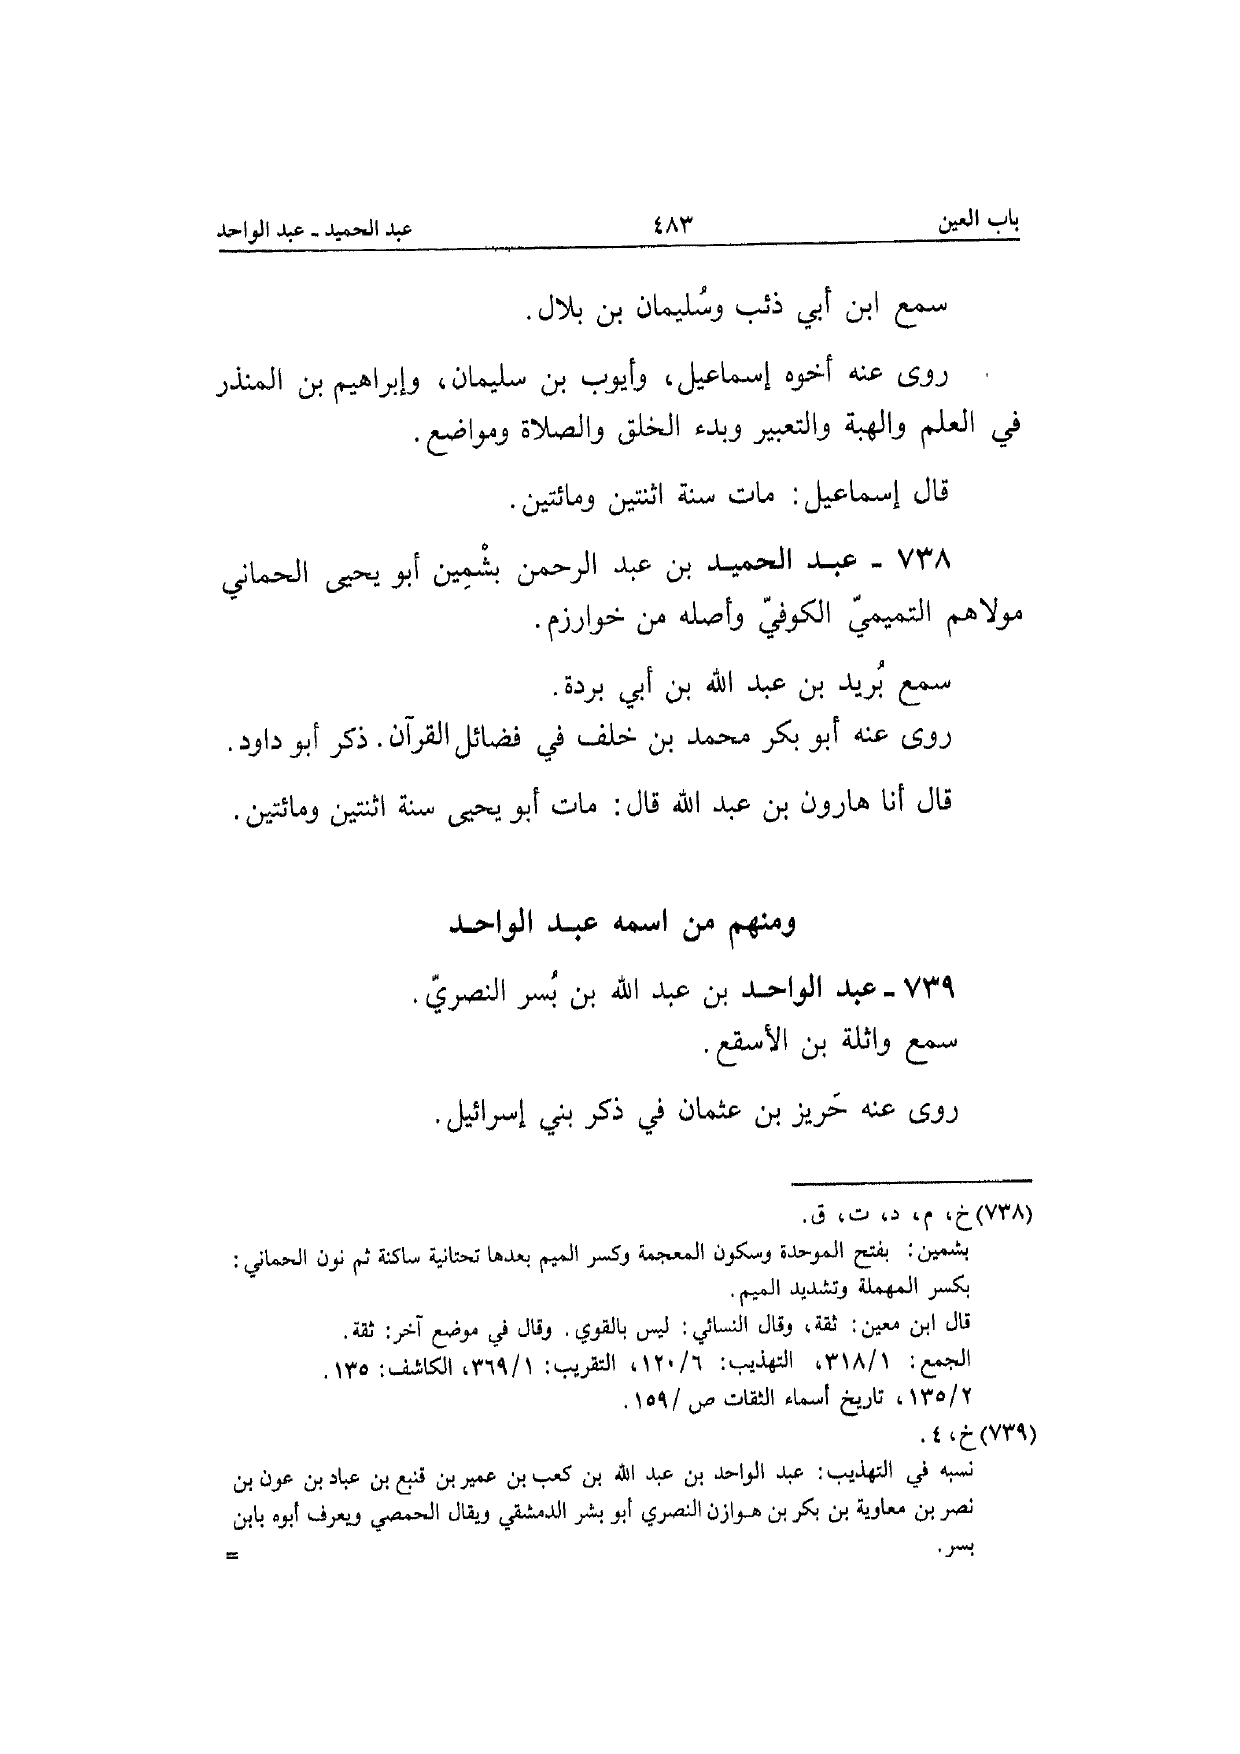 باب العين ٤٨٣ عبد الحميد ـ عبد الواحد
سمع ابن أبي ذئب وسُليمان بن بلال.
روى عنه أخوه إسماعيل، وأيوب بن سليمان، وإبراهيم بن المنذر
في العلم والهبة والتعبير وبدء الخلق والصلاة ومواضع.
قال إسماعيل: مات سنة اثنتين ومائتين.
٧٣٨ ـ عبد الحميد بن عبد الرحمن بشْمِين أبو يحيى الحماني
مولاهم التميميّ الكوفيّ وأصله من خوارزم.
سمع بُريد بن عبد الله بن أبي بردة.
روى عنه أبو بكر محمد بن خلف في فضائل القرآن. ذكر أبو داود.
قال أنا هارون بن عبد الله قال: مات أبو يحيى سنة اثنتين ومائتين.
ومنهم من اسمه عبد الواحد
٧٣٩ ـ عبد الواحد بن عبد الله بن بُسر النصريّ.
سمع واثلة بن الأسقع.
روى عنه حَريز بن عثمان في ذكر بني إسرائيل.
(٧٣٨) خ، م، د، ت، ق.
بشمين: بفتح الموحدة وسكون المعجمة وكسر الميم بعدها تحتانية ساكنة ثم نون الحماني:
بكسر المهملة وتشديد الميم.
قال ابن معين: ثقة، وقال النسائي: ليس بالقوي. وقال في موضع آخر: ثقة.
الجمع: ٣١٨/١، التهذيب: ١٢٠/٦، التقريب: ٣٦٩/١، الكاشف: ١٣٥.
١٣٥/٢، تاريخ أسماء الثقات ص /١٥٩.
(٧٣٩) خ، ٤.
نسبه في التهذيب: عبد الواحد بن عبد الله بن كعب بن عمير بن قنبع بن عباد بن عون بن
نصر بن معاوية بن بكر بن هوازن النصري أبو بشر الدمشقي ويقال الحمصي ويعرف أبوه بابن
بسر.
=